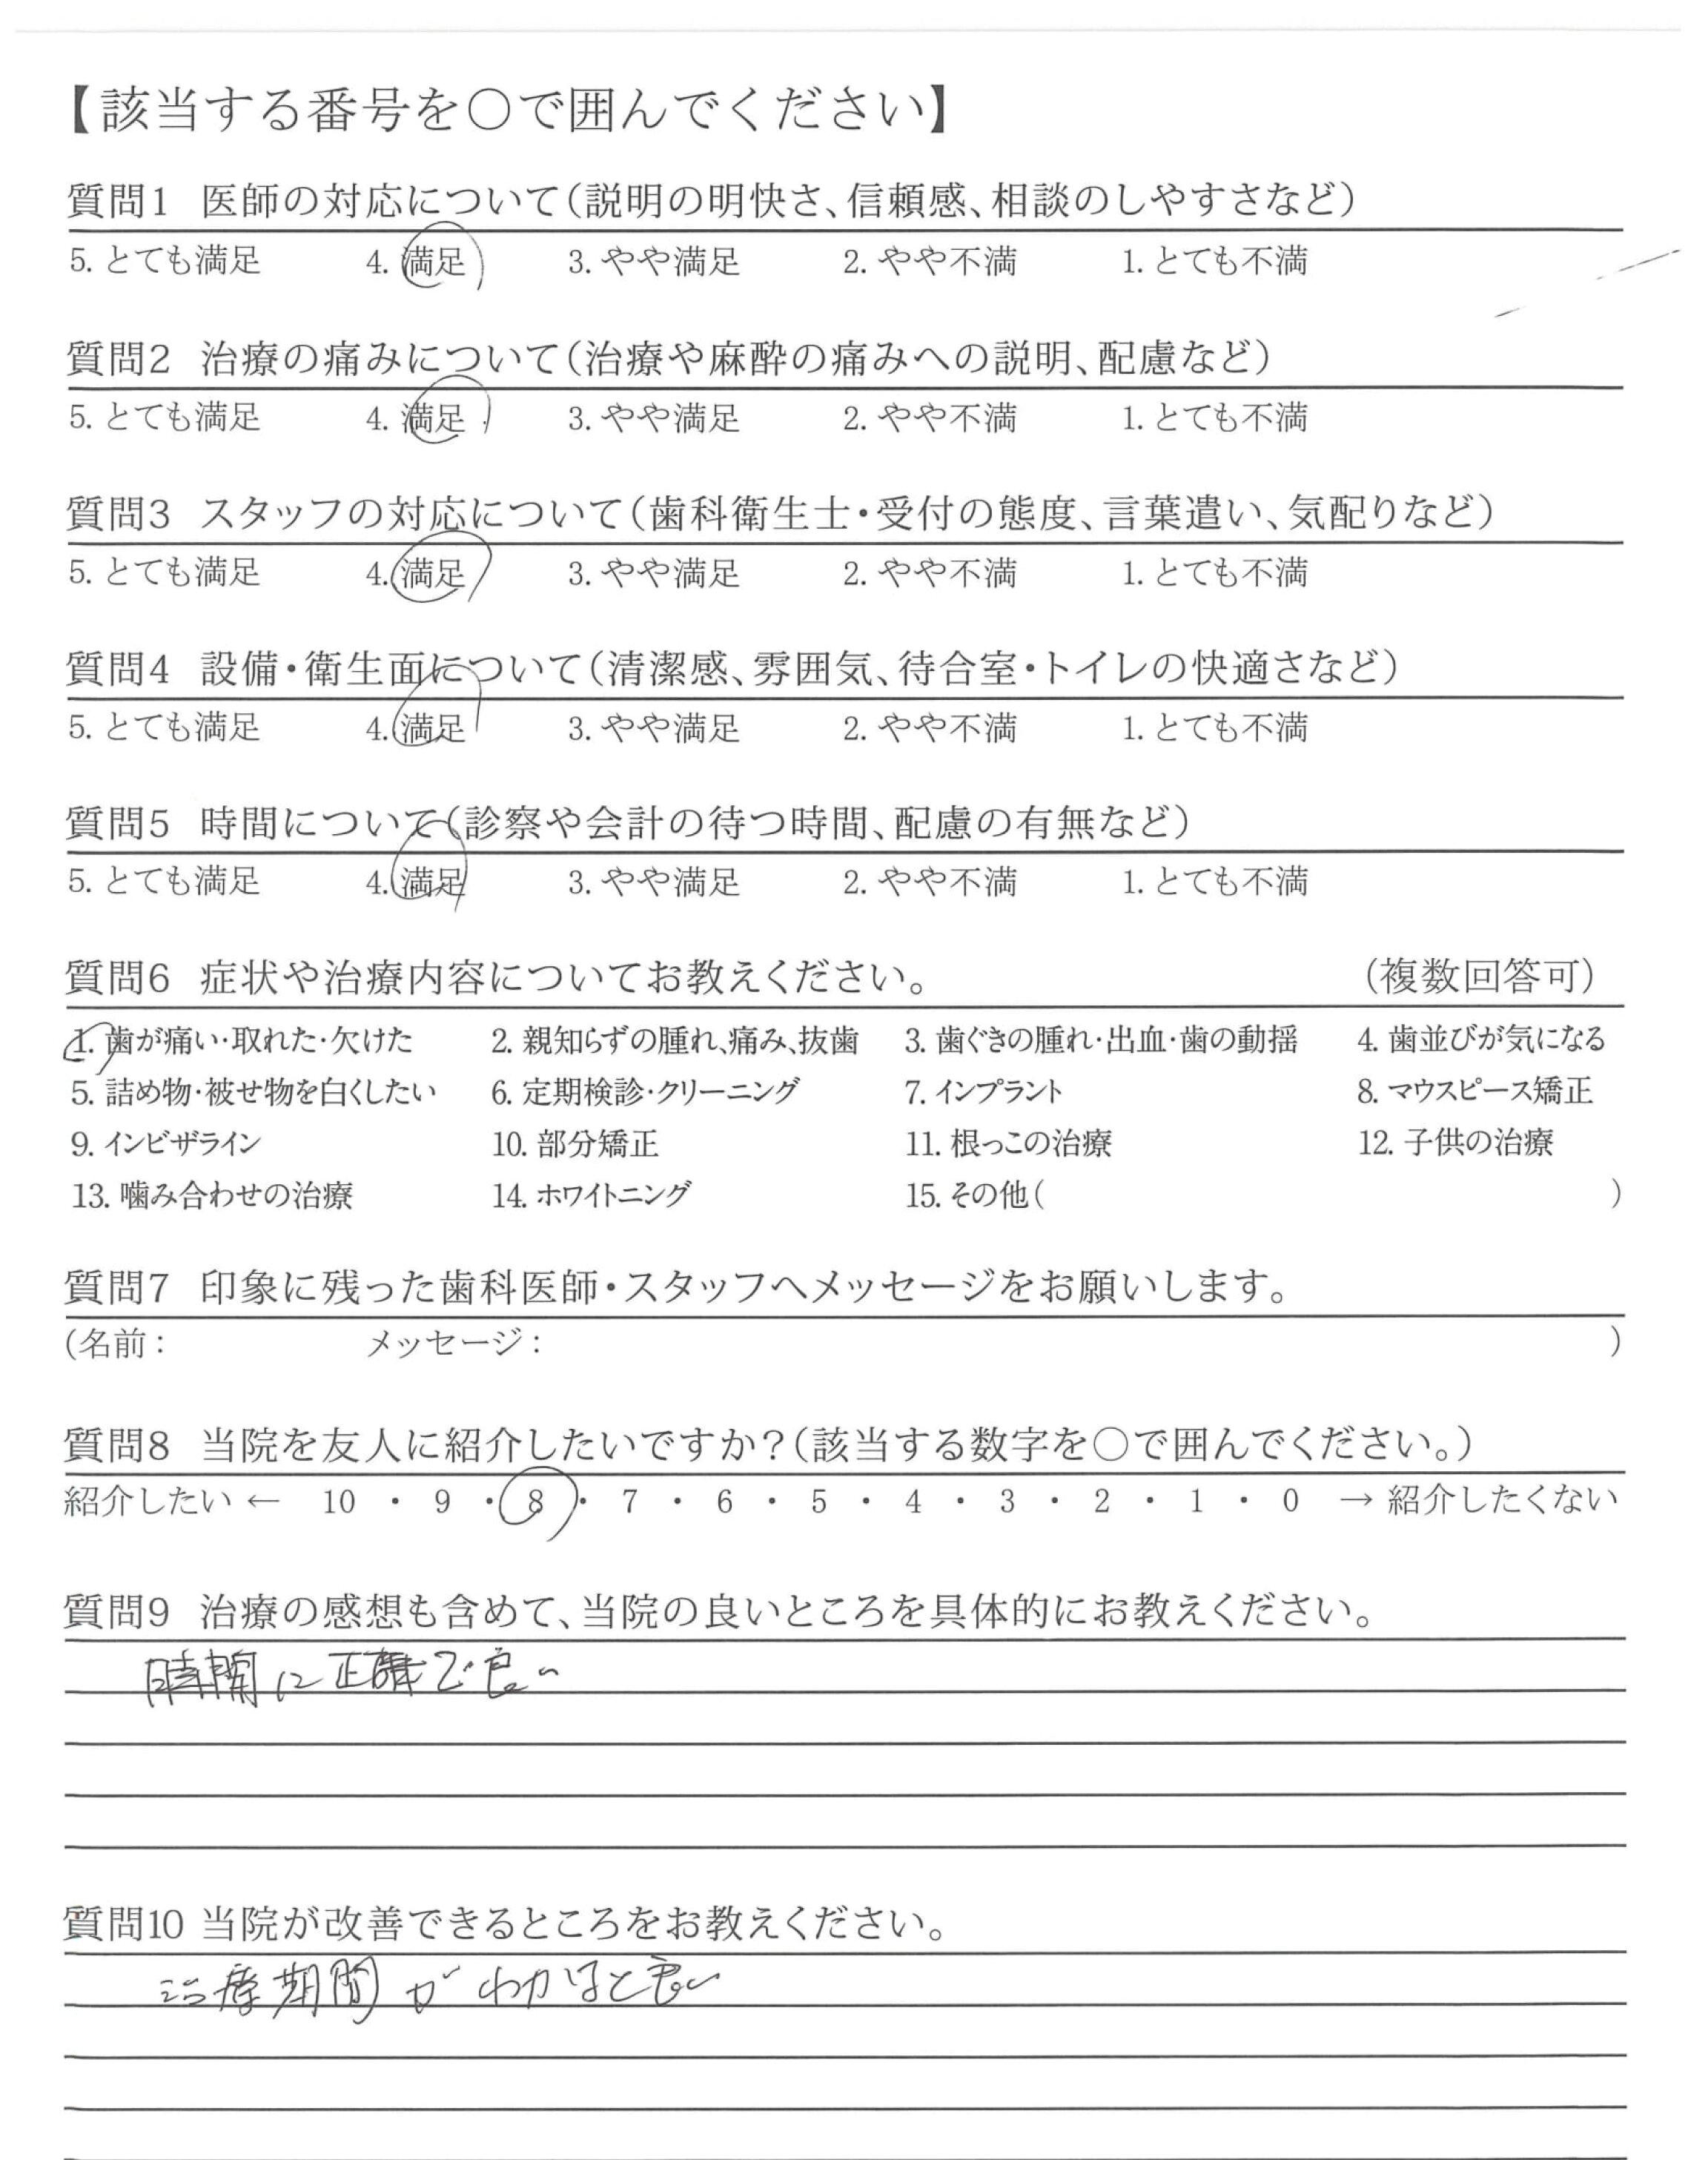 【該当する番号を○で囲んでください】
質問1 医師の対応について（説明の明快さ、信頼感、相談のしやすさなど）
5. とても満足 4. 満足 3. やや満足 2. やや不満 1. とても不満
質問2 治療の痛みについて（治療や麻酔の痛みへの説明、配慮など）
5. とても満足 4. 満足 3. やや満足 2. やや不満 1. とても不満
質問3 スタッフの対応について（歯科衛生士・受付の態度、言葉遣い、気配りなど）
5. とても満足 4. 満足 3. やや満足 2. やや不満 1. とても不満
質問4 設備・衛生面について（清潔感、雰囲気、待合室・トイレの快適さなど）
5. とても満足 4. 満足 3. やや満足 2. やや不満 1. とても不満
質問5 時間について（診察や会計の待つ時間、配慮の有無など）
5. とても満足 4. 満足 3. やや満足 2. やや不満 1. とても不満
質問6 症状や治療内容についてお教えください。 （複数回答可）
1. 歯が痛い・取れた・欠けた 2. 親知らずの腫れ、痛み、抜歯 3. 歯ぐきの腫れ・出血・歯の動揺 4. 歯並びが気になる
5. 詰め物・被せ物を白くしたい 6. 定期検診・クリーニング 7. インプラント 8. マウスピース矯正
9. インビザライン 10. 部分矯正 11. 根っこの治療 12. 子供の治療
13. 噛み合わせの治療 14. ホワイトニング 15. その他（ ）
質問7 印象に残った歯科医師・スタッフへメッセージをお願いします。
（名前： メッセージ： ）
質問8 当院を友人に紹介したいですか？（該当する数字を○で囲んでください。）
紹介したい ← 10 ・ 9 ・ 8 ・ 7 ・ 6 ・ 5 ・ 4 ・ 3 ・ 2 ・ 1 ・ 0 → 紹介したくない
質問9 治療の感想も含めて、当院の良いところを具体的にお教えください。
時間に正確で良い
質問10 当院が改善できるところをお教えください。
治療期間がわかると良い